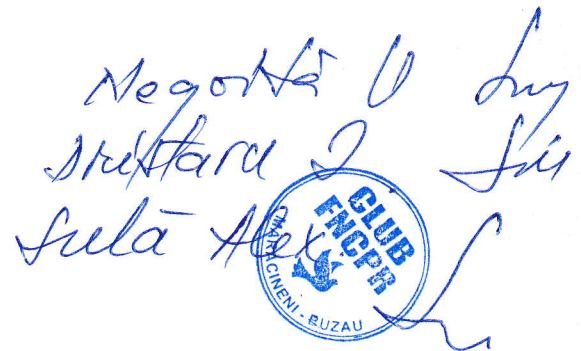 Negoită V
Dristaru I.
Sulă Alex
CLUB
FNCPR
MARACINENI - BUZAU